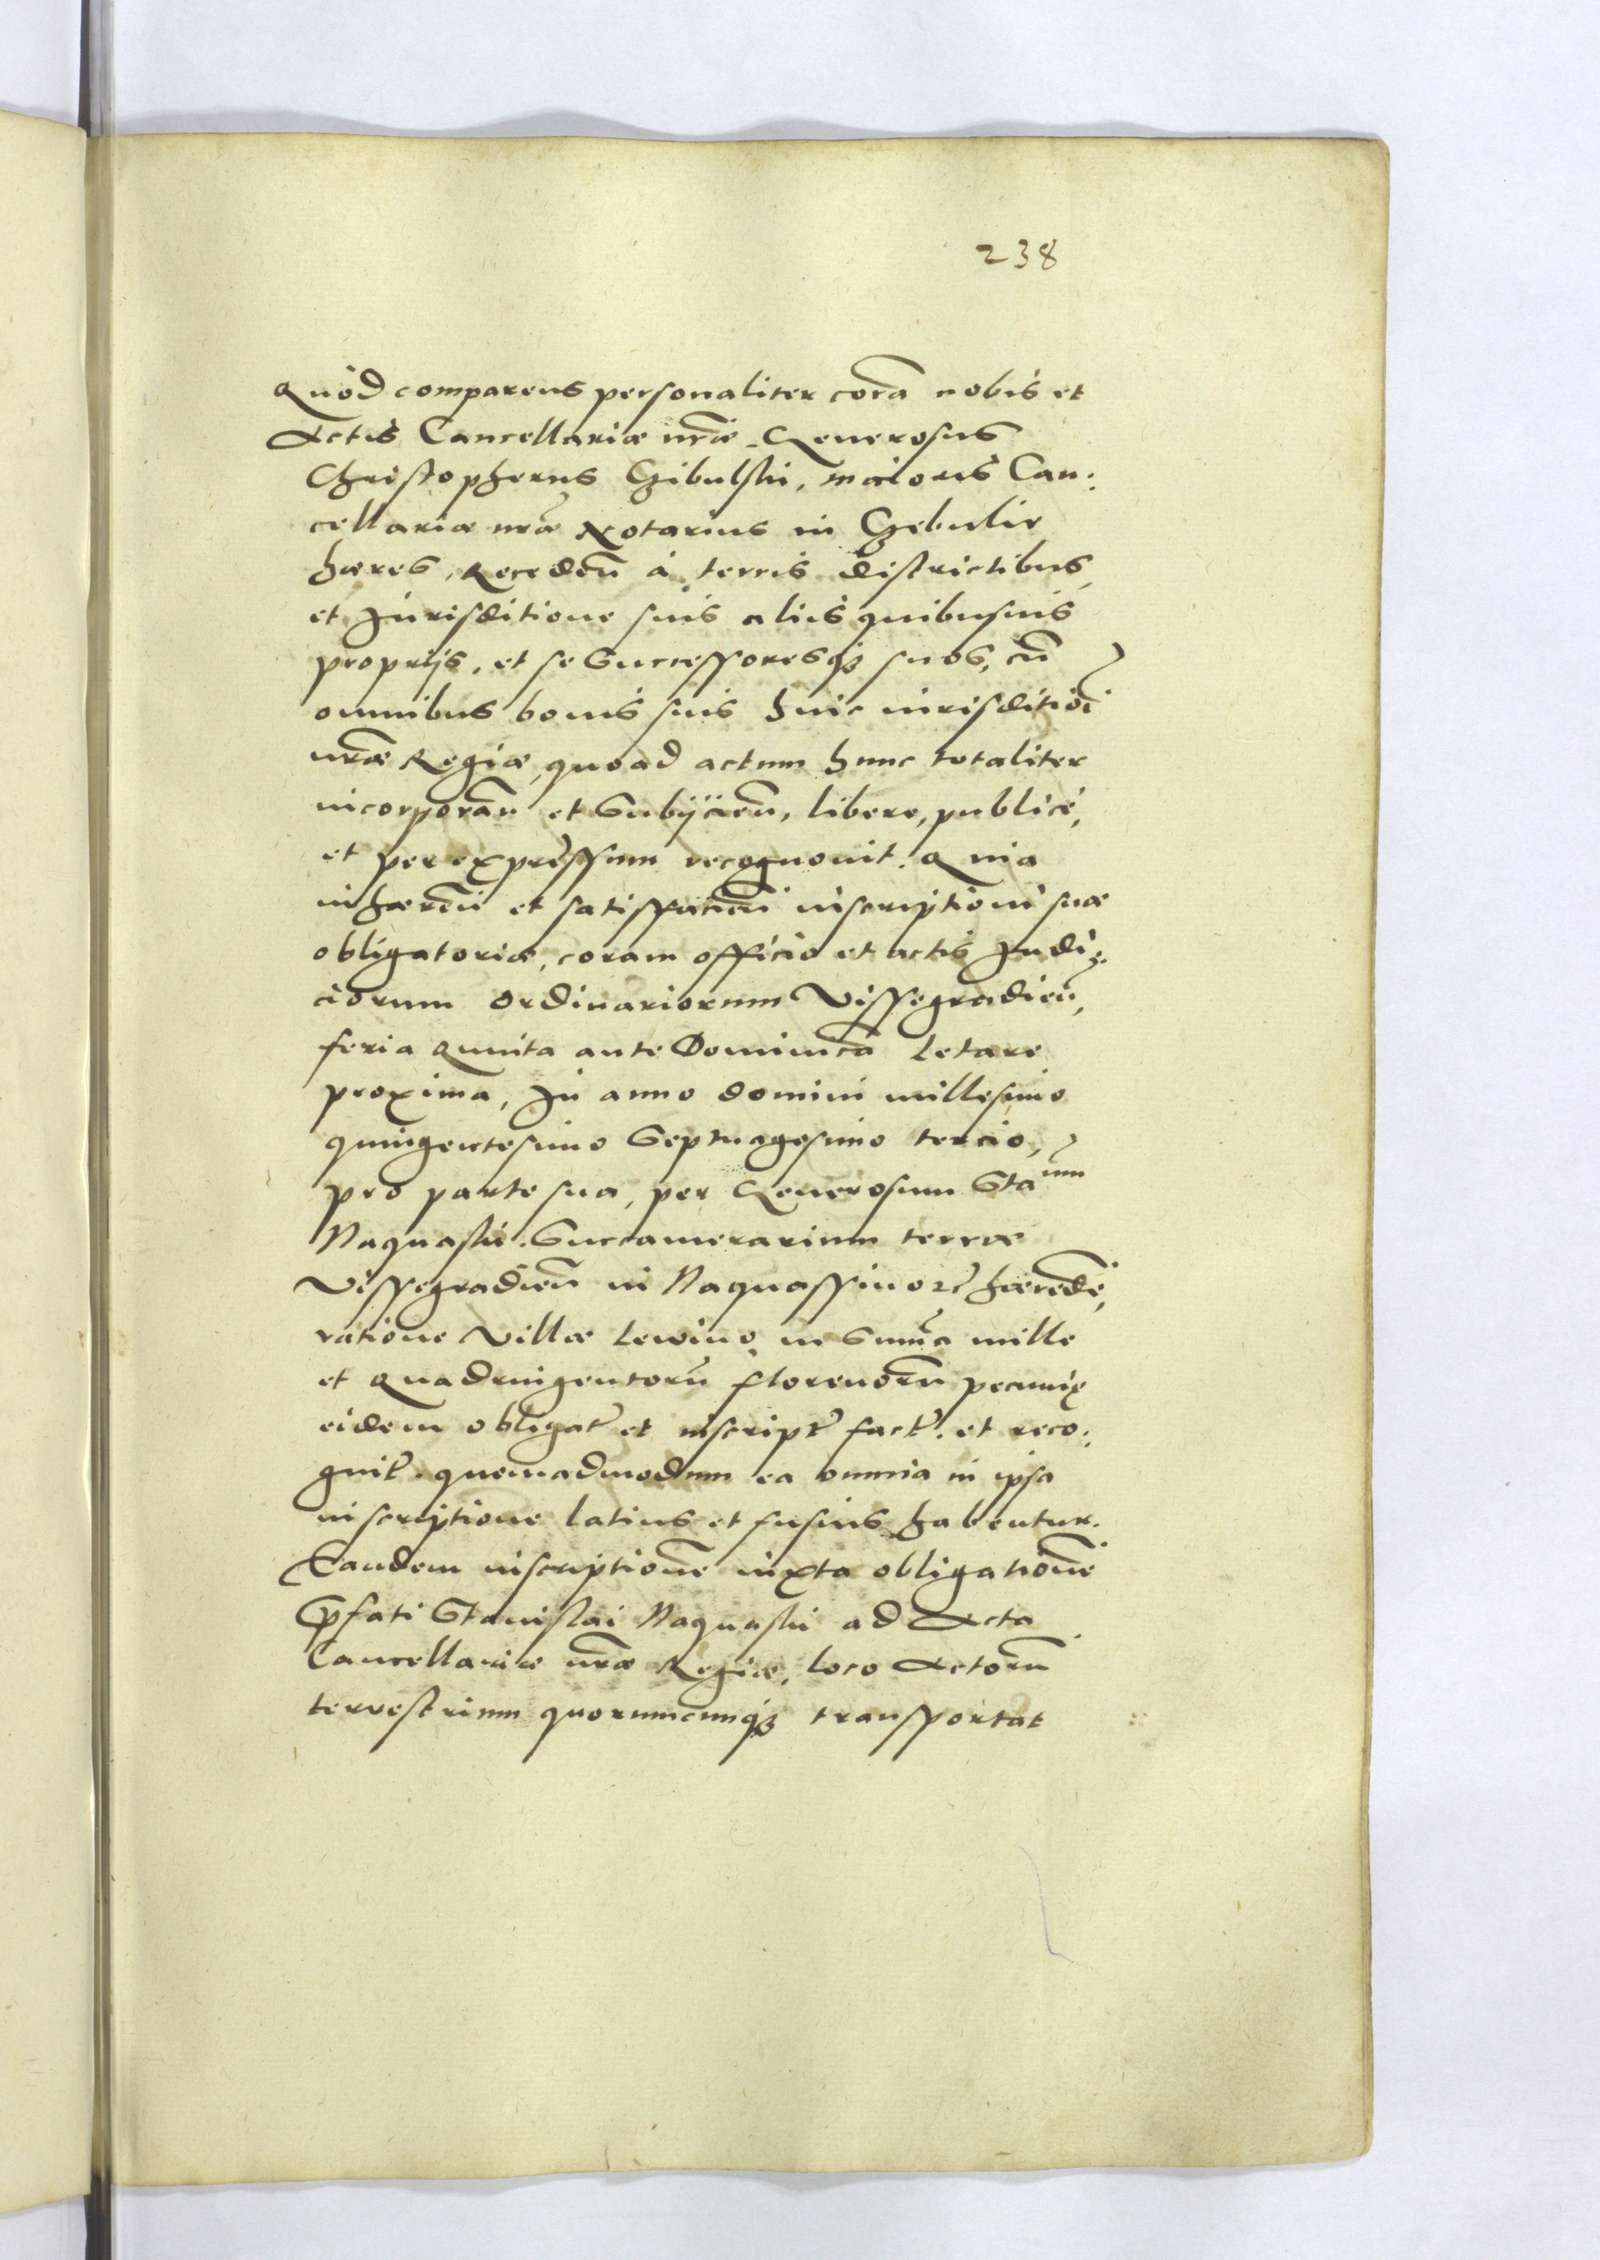 238
Quod comparens personaliter corā nobis et
Actis Cancellariæ nrāe. Generosus
Christopherus Czibulski, maioris Can:
cellariæ nrāe Notarius in Czebulie
hæres, Recedeñ à terris districtibus
et Jurisditione suis aliis quibusuis
proprijs, et se Successoresq₃ suos, cū
omnibus bonis suis huic iurisditioī
nrāe Regiæ, quoad actum hunc totaliter
incorporañ et Subijcieñ, libere, publicè,
et per expressum recognouit. Quia
inhæreñ et satisfacieñ inscriptioni suæ
obligatoriæ, coram officio et actis Judi:
ciorum ordinariorum Vissegradieñ,
feria Quinta ante Dominicā Letare
proxima, In anno domini millesimo
quingentesimo Septuagesimo tercio,
pro parte sua, per Generosum Staum
Naquaski Succamerarium terræ
Vissegradieñ in Naquassino etc hæredē,
ratione Villæ Lewino, in Summa mille
et Quadringentorū florenorū pecuniæ
eidem obligat et inscript fact. et reco:
gnit. quemadmodum ea omnia in ipsa
inscriptione latius et fusius habentur.
Eandem inscriptionē iuxta obligationē
Pfati Stanislai Naquaski ad Acta
Cancellariæ nrāe Regiæ, loco Actorū
terrestrium quorumcunq₃ transportat